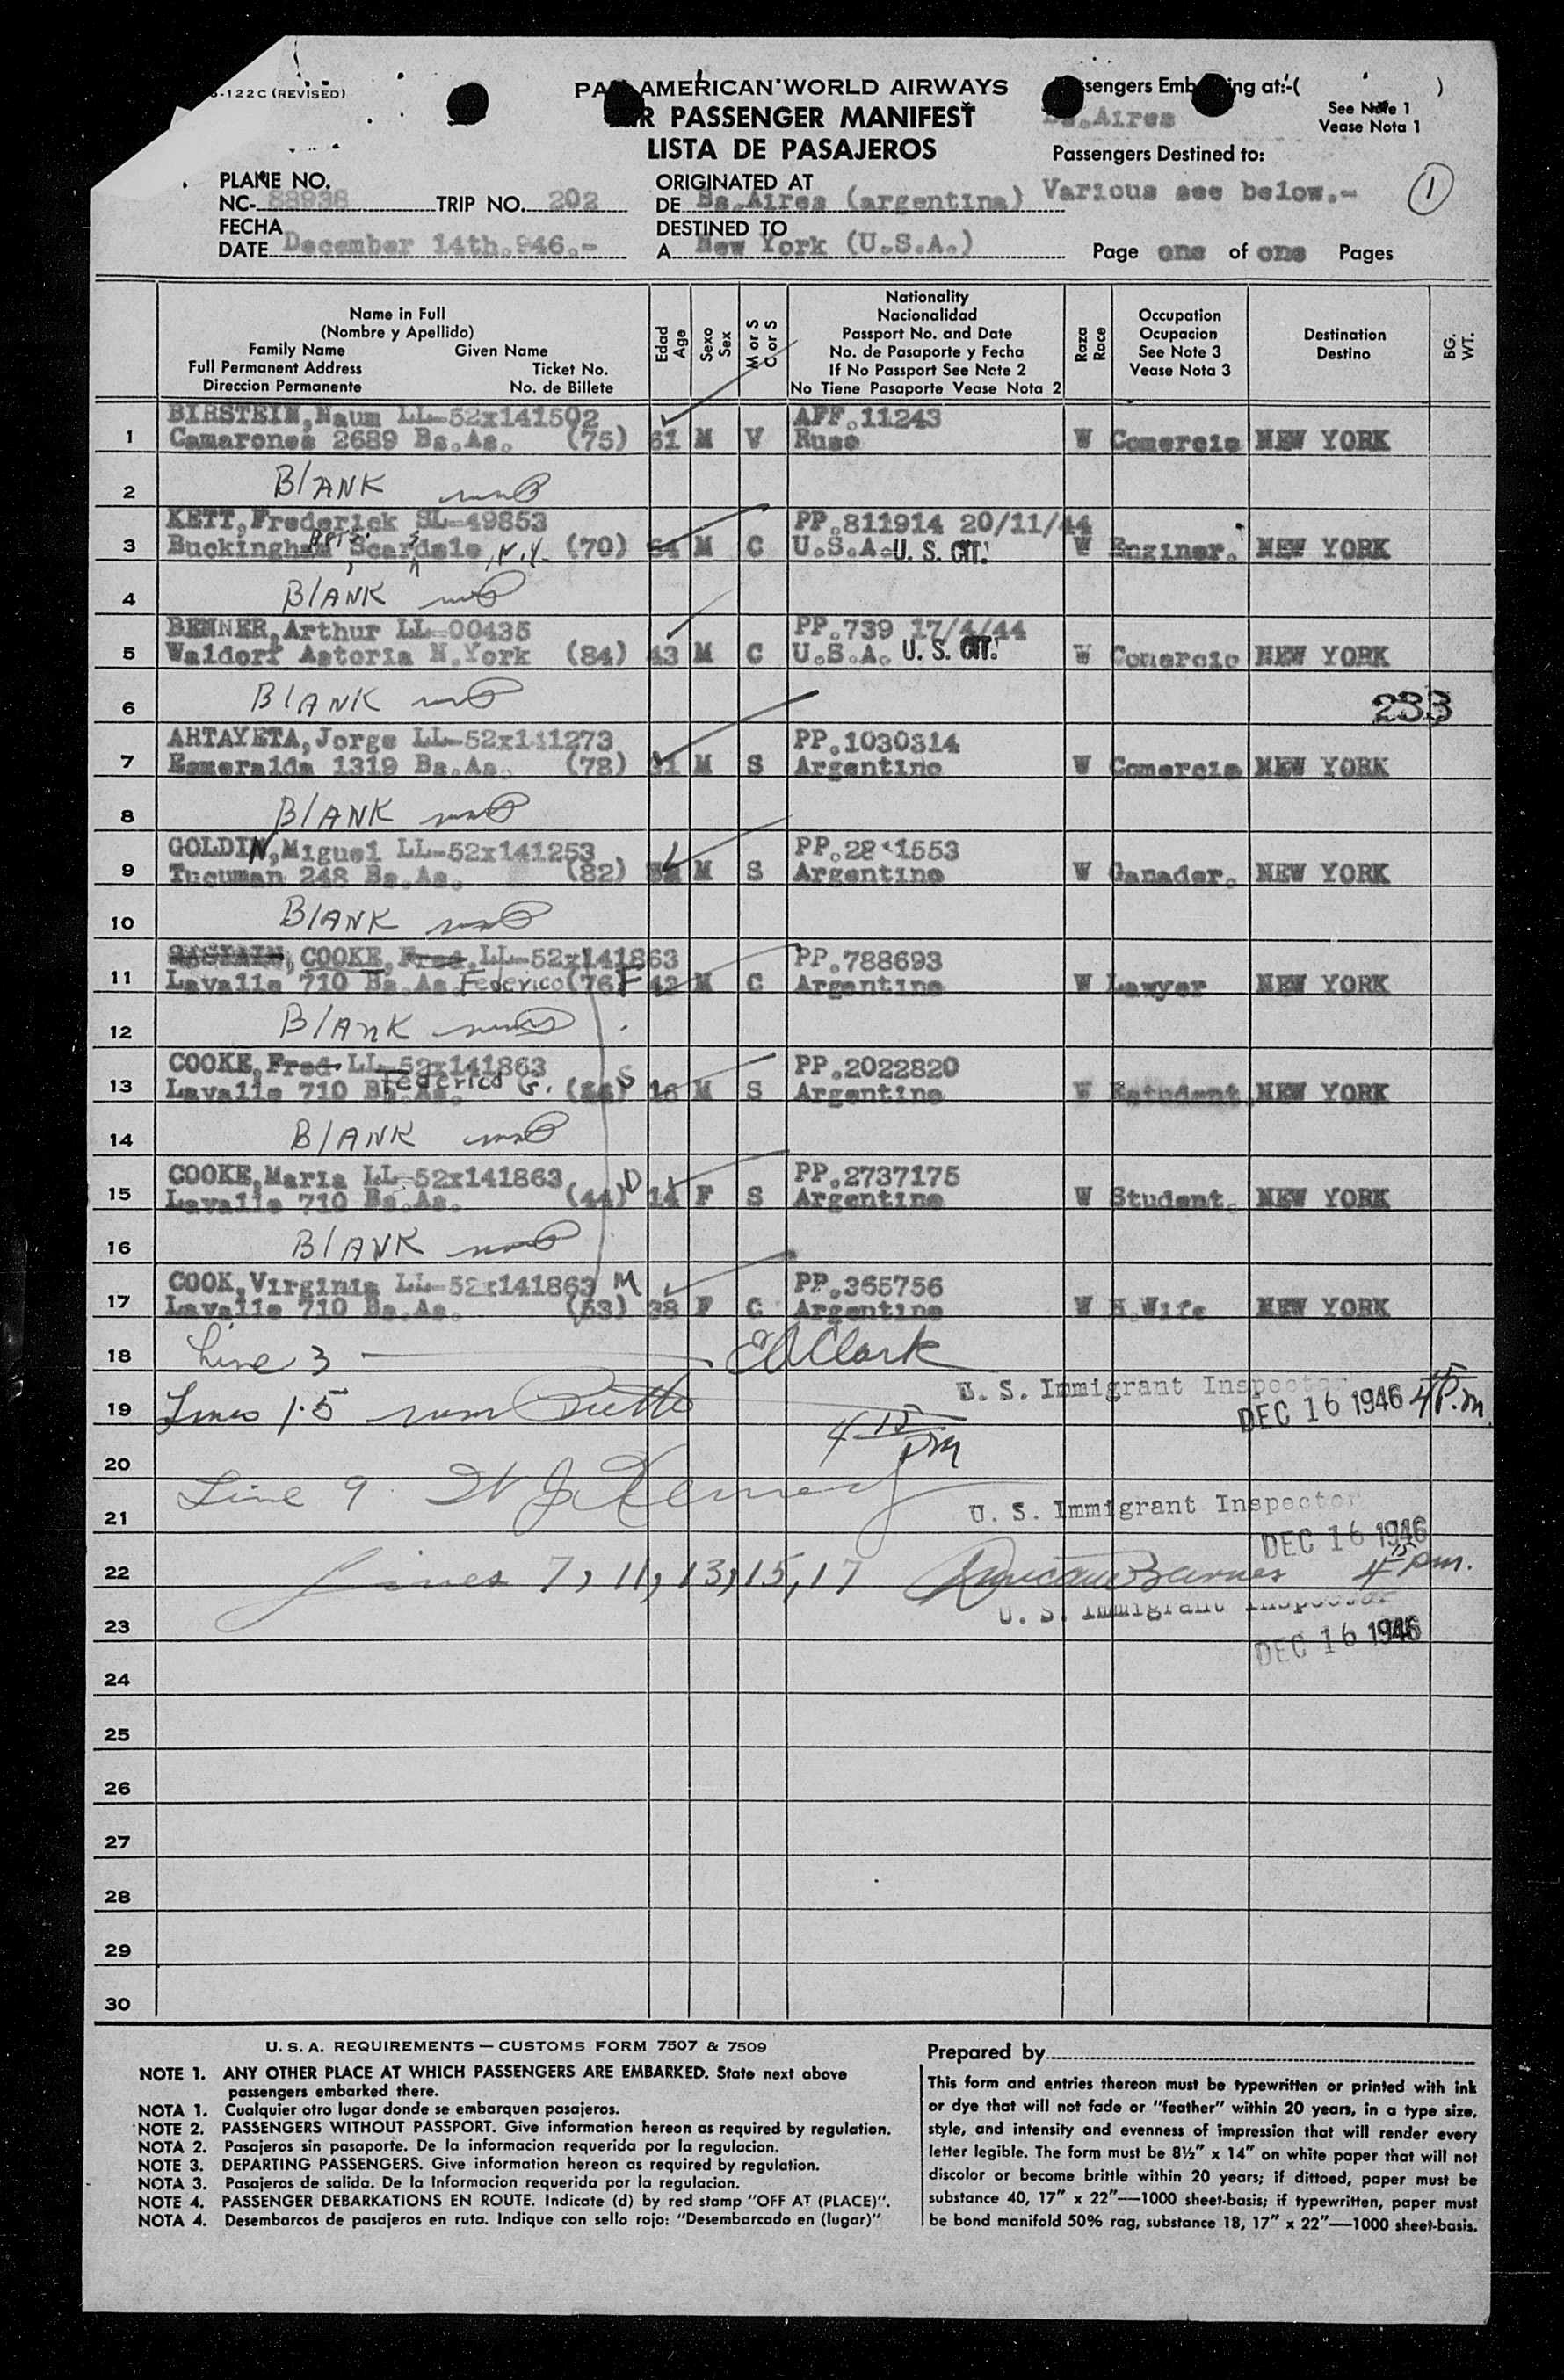 -122C (REVISED)
PAN AMERICAN WORLD AIRWAYS
AIR PASSENGER MANIFEST
LISTA DE PASAJEROS
Passengers Embarking at:-( )
Bs.Aires
See Note 1
Vease Nota 1
Passengers Destined to:
Various see below.-
1
PLANE NO.
NC- 88938 TRIP NO. 202
FECHA
DATE December 14th.946.-
ORIGINATED AT
DE Bs.Aires (argentina)
DESTINED TO
A New York (U.S.A.)
Page one of one Pages
Name in Full
(Nombre y Apellido)
Family Name Given Name
Full Permanent Address Ticket No.
Direccion Permanente No. de Billete
Edad
Age
Sexo
Sex
M or S
C or S
Nationality
Nacionalidad
Passport No. and Date
No. de Pasaporte y Fecha
If No Passport See Note 2
No Tiene Pasaporte Vease Nota 2
Raza
Race
Occupation
Ocupacion
See Note 3
Vease Nota 3
Destination
Destino
BG.
WT.
BIRSTEIN,Naum LL-52x141502 AFF.11243
1 Camarones 2689 Bs.As. (75) 61 M V Ruso W Comercio NEW YORK
2 BLANK
KETT,Frederick SL-49853 PP.811914 20/11/44
3 Buckingham Apts. Scarsdale N.Y. (70) M C U.S.A. U. S. CIT. W Enginer. NEW YORK
4 BLANK
BENNER,Arthur LL-00435 PP.739 17/4/44
5 Waldorf Astoria N.York (84) 43 M C U.S.A. U. S. CIT. W Comercio NEW YORK
6 BLANK 233
ARTAYETA,Jorge LL-52x141273 PP.1030314
7 Esmeralda 1319 Bs.As. (78) 31 M S Argentino W Comercio NEW YORK
8 BLANK
GOLDIN,Miguel LL-52x141253 PP.28 1553
9 Tucuman 248 Bs.As. (82) M S Argentino W Ganader. NEW YORK
10 BLANK
COOKE, Fred. LL-52x141863 PP.788693
11 Lavalle 710 Bs.As. Federico (76) F 42 M C Argentino W Lawyer NEW YORK
12 BLANK
COOKE,Fred LL-52x141863 PP.2022820
13 Lavalle 710 Bs.As. Federico G. S 16 M S Argentino W Estudent NEW YORK
14 BLANK
COOKE,Maria LL-52x141863 PP.2737175
15 Lavalle 710 Bs.As. (44) D 14 F S Argentina W Student. NEW YORK
16 BLANK
COOK,Virginia LL-52x141863 M PP.365756
17 Lavalle 710 Bs.As. (53) 38 F C Argentina W H.Wife NEW YORK
18 Line 3 EA Clark
U. S. Immigrant Inspector
19 Lines 1-5 DEC 16 1946 4 15 P.m.
4 15 PM
20
Line 9
21 U. S. Immigrant Inspector
DEC 16 1946
22 Lines 7, 11, 13, 15, 17 4 15 pm.
U. S. Immigrant Inspector
23 DEC 16 1946
24
25
26
27
28
29
30
U. S. A. REQUIREMENTS — CUSTOMS FORM 7507 & 7509
NOTE 1. ANY OTHER PLACE AT WHICH PASSENGERS ARE EMBARKED. State next above
passengers embarked there.
NOTA 1. Cualquier otro lugar donde se embarquen pasajeros.
NOTE 2. PASSENGERS WITHOUT PASSPORT. Give information hereon as required by regulation.
NOTA 2. Pasajeros sin pasaporte. De la informacion requerida por la regulacion.
NOTE 3. DEPARTING PASSENGERS. Give information hereon as required by regulation.
NOTA 3. Pasajeros de salida. De la Informacion requerida por la regulacion.
NOTE 4. PASSENGER DEBARKATIONS EN ROUTE. Indicate (d) by red stamp "OFF AT (PLACE)".
NOTA 4. Desembarcos de pasajeros en ruta. Indique con sello rojo: "Desembarcado en (lugar)"
Prepared by
This form and entries thereon must be typewritten or printed with ink
or dye that will not fade or "feather" within 20 years, in a type size,
style, and intensity and evenness of impression that will render every
letter legible. The form must be 8½" x 14" on white paper that will not
discolor or become brittle within 20 years; if dittoed, paper must be
substance 40, 17" x 22"—1000 sheet-basis; if typewritten, paper must
be bond manifold 50% rag, substance 18, 17" x 22"—1000 sheet-basis.